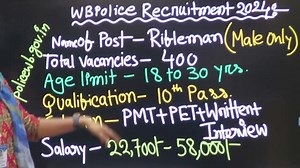 WBPolice Recruitment 2024
policewb.gov.in
Name of Post - Rifleman (Male Only)
Total Vacancies - 400
Age limit - 18 to 30 yrs.
Qualification - 10th Pass.
PMT+PET+Writtent
Interview
Salary - 22,700/- 58,000/-